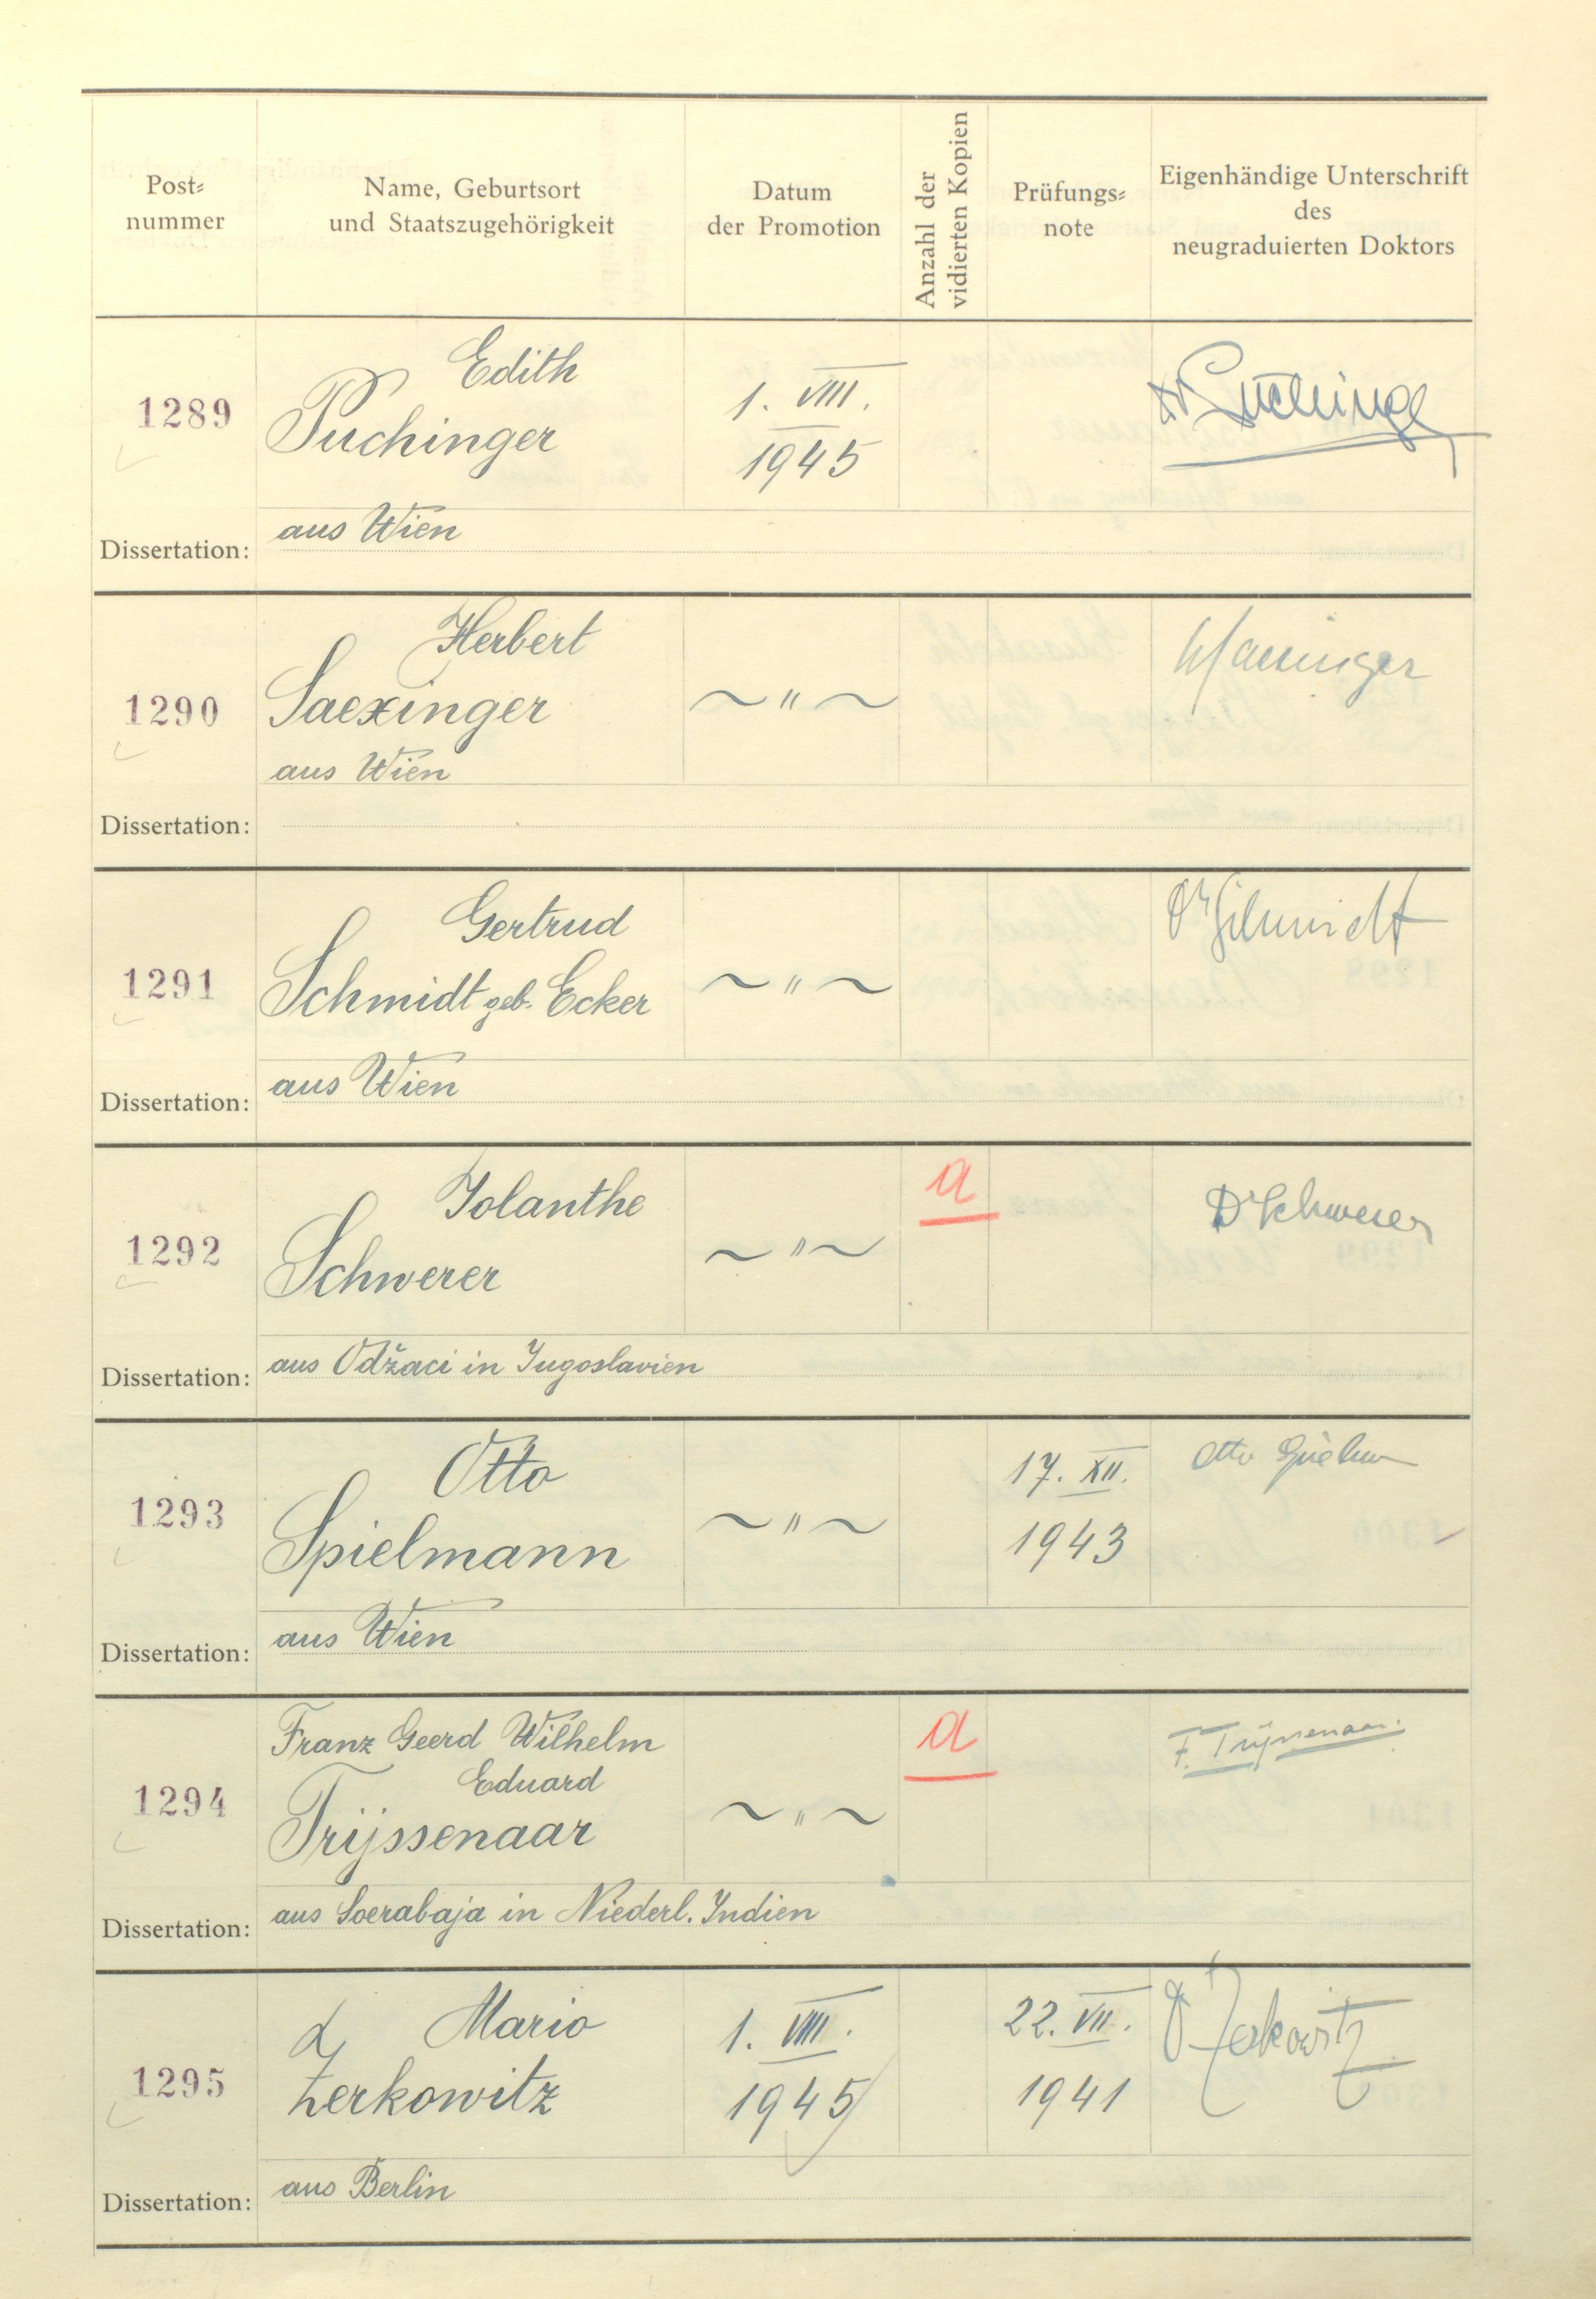 Post-
nummer
Name, Geburtsort
und Staatszugehörigkeit
Datum
der Promotion
Anzahl der
vidierten Kopien
Prüfungs-
note
Eigenhändige Unterschrift
des
neugraduierten Doktors
1289
Edith
Puchinger
1. VIII.
1945
Dr Puchinger
Dissertation: aus Wien
1290
Herbert
Saexinger
~ " ~
aus Wien
Dissertation:
1291
Gertrud
Schmidt geb. Ecker
~ " ~
Dr Schmidt
Dissertation: aus Wien
1292
Jolanthe
Schwerer
~ " ~
a
Dr Schwerer
Dissertation: aus Odžaci in Jugoslavien
1293
Otto
Spielmann
~ " ~
17. XII.
1943
Otto Spielmann
Dissertation: aus Wien
1294
Franz Geerd Wilhelm
Eduard
Trijssenaar
~ " ~
a
F. Trijssenaar.
Dissertation: aus Soerabaja in Niederl. Indien
1295
Mario
Zerkowitz
1. VIII.
1945
22. VII.
1941
Dr Zerkowitz
Dissertation: aus Berlin